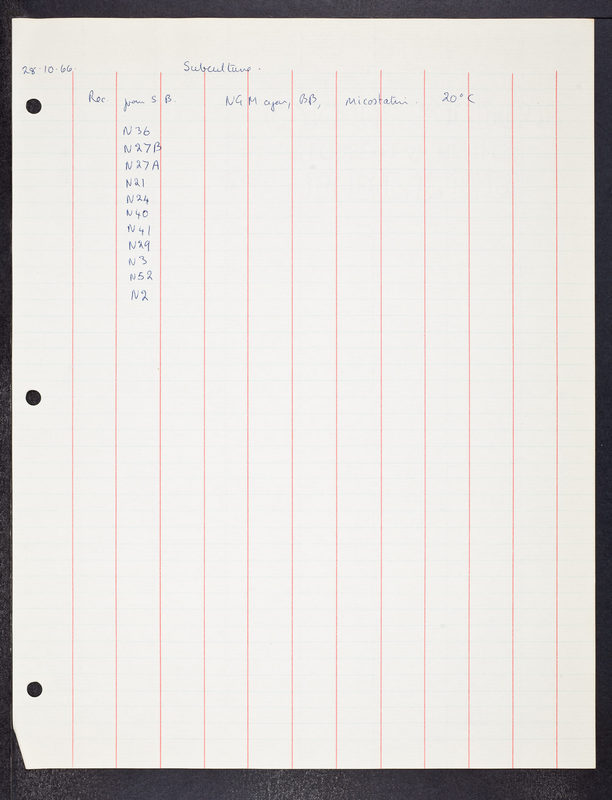 28-10-66. Subculture.
Rec. from S B. NG M agar, BB, micostatin. 20°C
N36
N27B
N27A
N21
N24
N40
N41
N29
N3
N52
N2